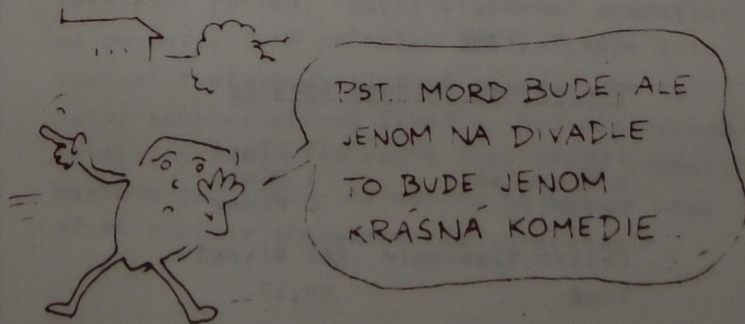 PST. MORD BUDE, ALE
JENOM NA DIVADLE
TO BUDE JENOM
KRÁSNÁ KOMEDIE.